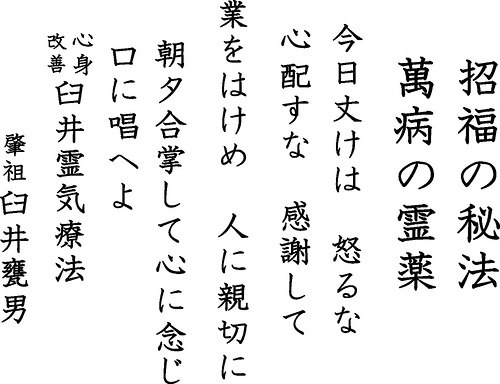 招福の秘法
萬病の霊薬
今日丈けは 怒るな
心配すな 感謝して
業をはけめ 人に親切に
朝夕合掌して心に念じ
口に唱へよ
心身改善 臼井霊気療法
肇祖 臼井甕男